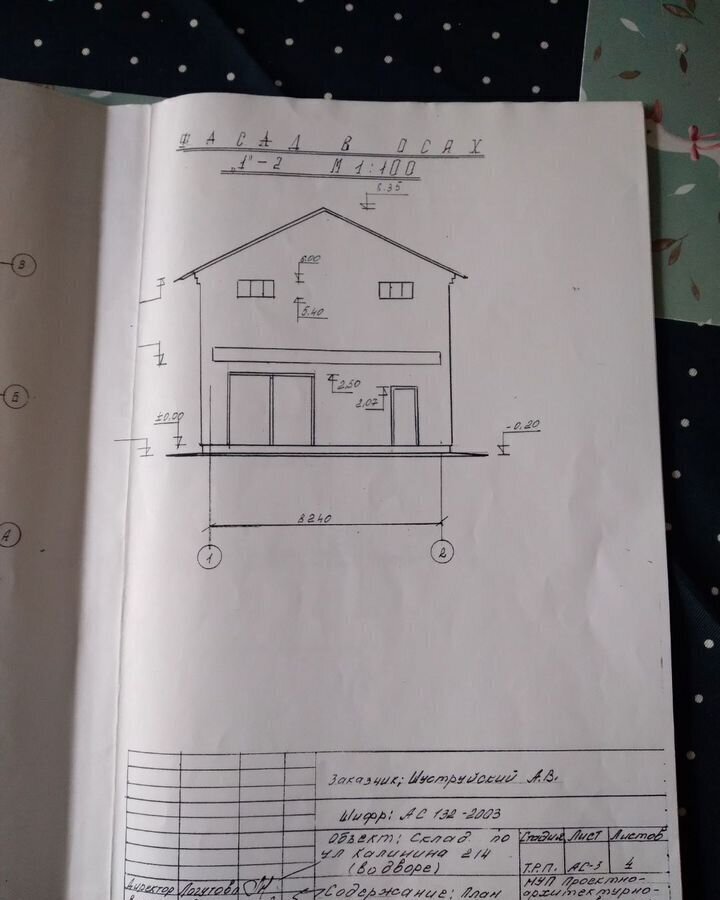 ФАСАД В ОСАХ
„1"-2 М 1:100
8.35
В
6.00
5.40
Б
2.50
2.07
±0.00
-0.20
А
8240
1 2
Заказчик; Шуструйский А.В.
Шифр; АС 132-2003
Объект; Склад по
ул Калинина 214
(во дворе)
Стадия Лист Листов
Т.Р.П. АС-3 4
Директор
Содержание; План
МУП Проектно-
архитектурно-